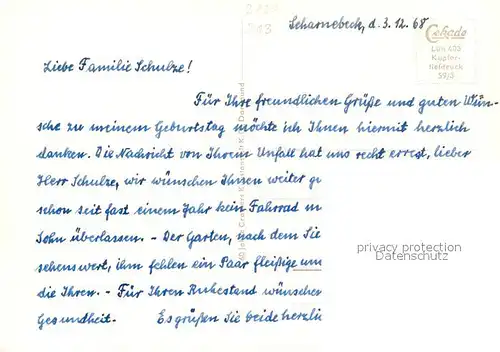 Scharnebeck, d. 3.12.68
Cekade
Lün 635
Kupfer-
tiefdruck
59/3
Liebe Familie Schulze!
Für Ihre freundlichen Grüße und guten Wün-
sche zu meinem Geburtstag möchte ich Ihnen hiermit herzlich
danken. Die Nachricht von Ihrem Unfall hat uns recht erregt, lieber
Herr Schulze, wir wünschen Ihnen weiter g
schon seit fast einem Jahr kein Fahrrad m
Sohn überlassen. - Der Garten, nach dem Sie
sehenswert, ihm fehlen ein Paar fleißige um
die Ihren. - Für Ihren Ruhestand wünschen
Gesundheit. Es grüßen Sie beide herzli
privacy protection
Datenschutz